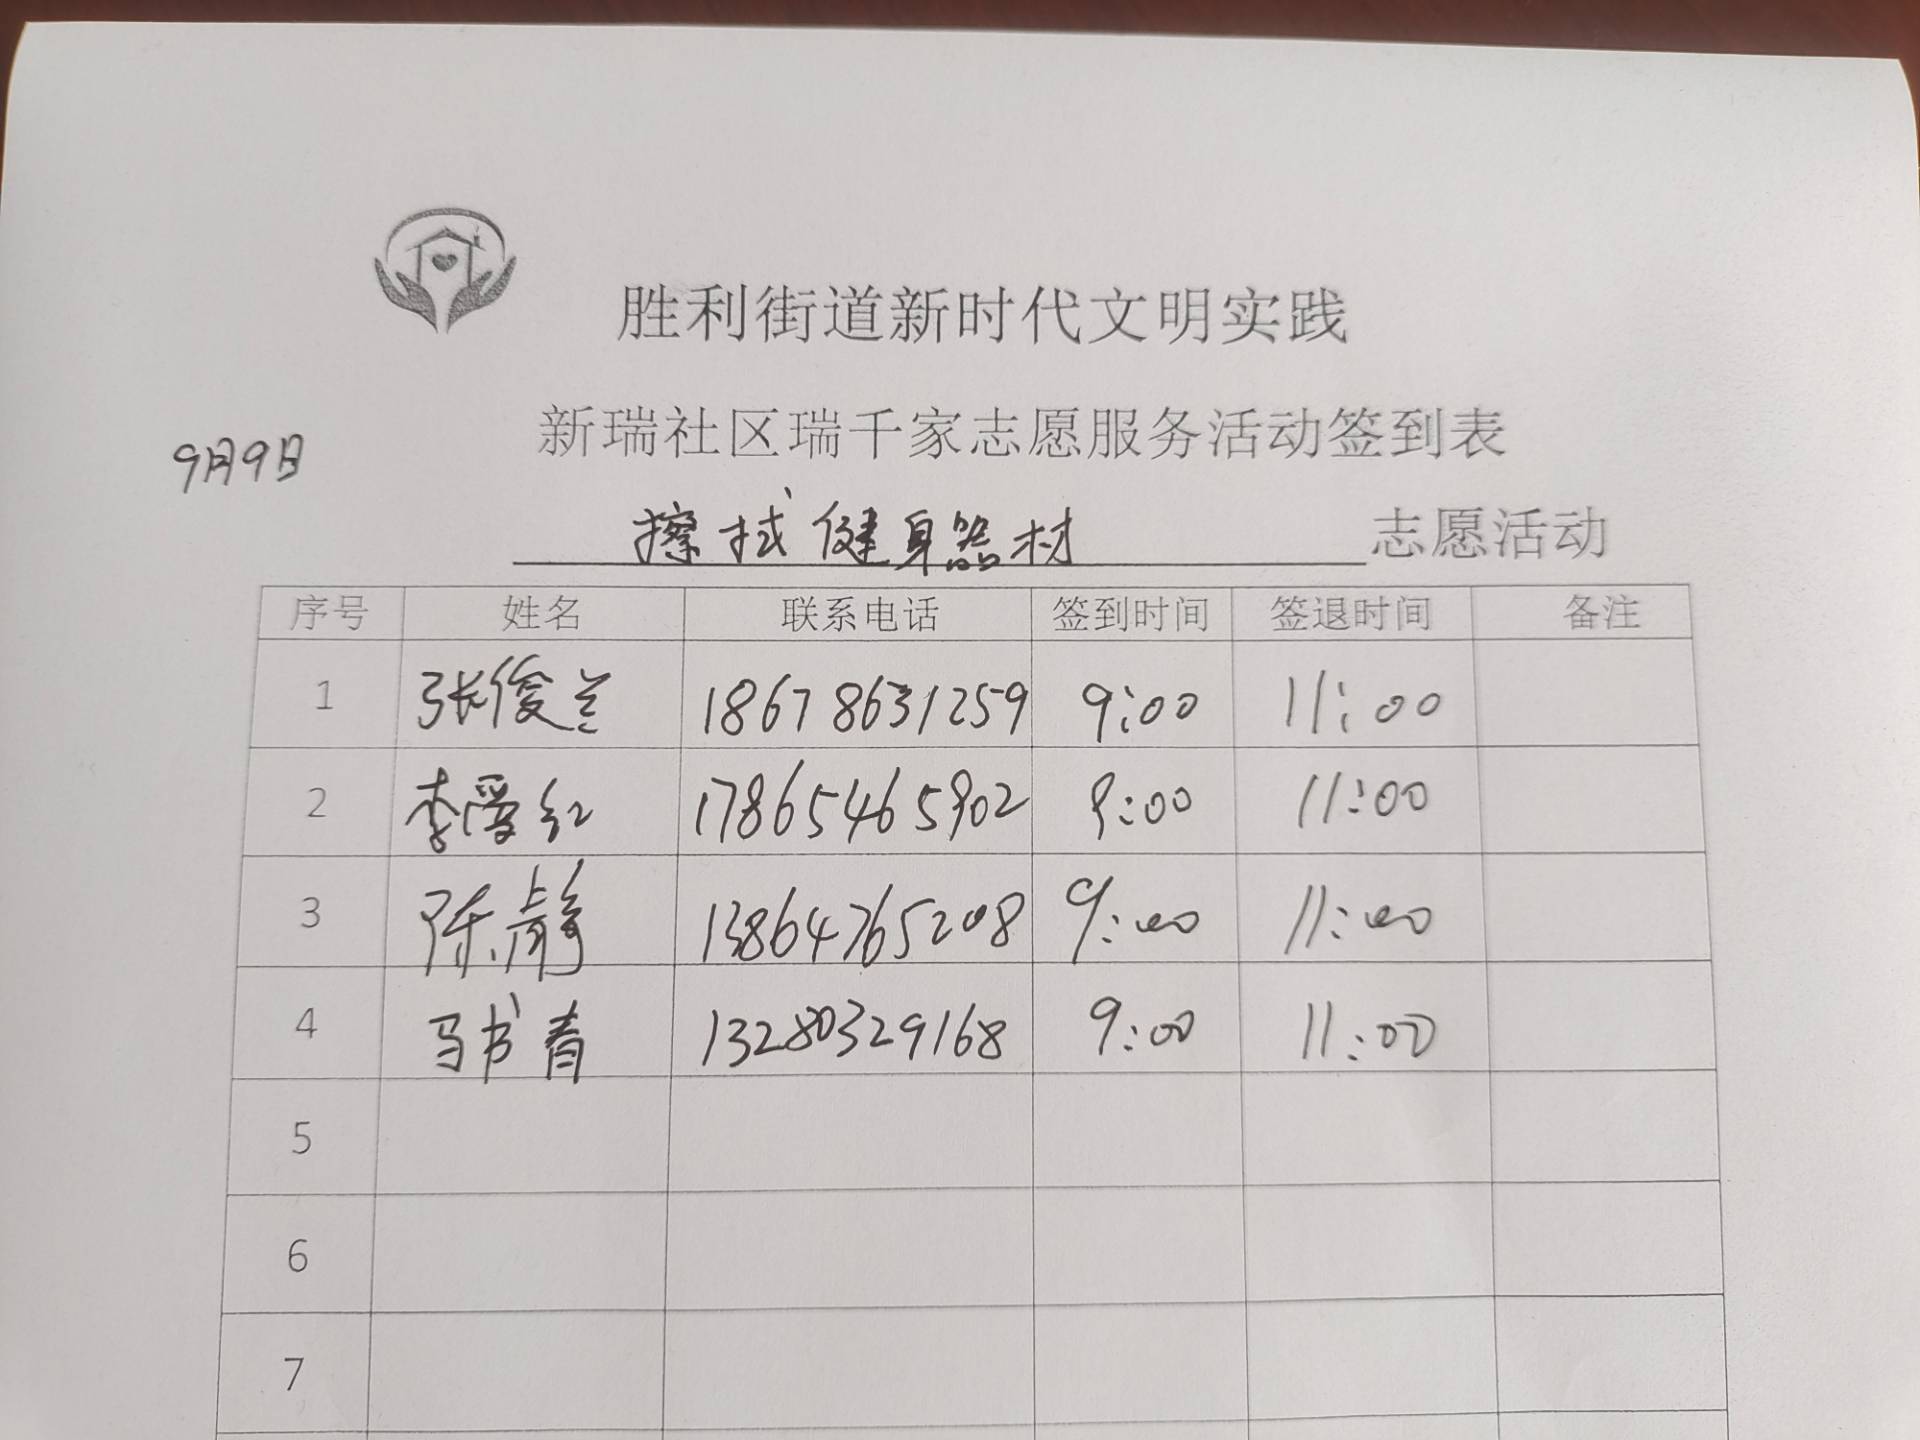 胜利街道新时代文明实践
9月9日 新瑞社区瑞千家志愿服务活动签到表
擦拭健身器材 志愿活动
序号 姓名 联系电话 签到时间 签退时间 备注
1 张俊兰 18678631259 9:00 11:00
2 李爱红 17865465902 9:00 11:00
3 陈静 13864765208 9:00 11:00
4 马书青 13280329168 9:00 11:00
5
6
7